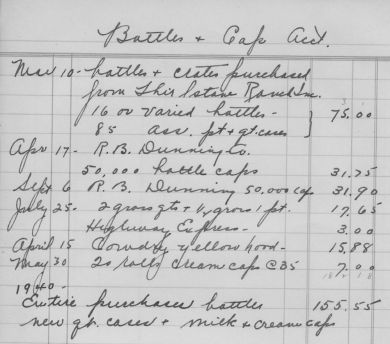 Bottles + Cap Acct.
Mar 10 - bottles + crates purchased
from Ranch Inc.
16 oz varied bottles -
85 ass. pt + qt. cases } 75.00
Apr 17 - R. B. Dunning Co.
50,000 bottle caps 31.75
Sept 6 R. B. Dunning 50,000 caps 31.90
July 25 - 2 gross qts + ½ gross 1 pt. 17.65
Highway Express - 3.00
April 15 Cowdry yellow hood - 15.88
May 30 20 rolls cream caps @ 35 7.00
1940 -
Entire purchases bottles 155.55
new qt. cases + milk + cream caps